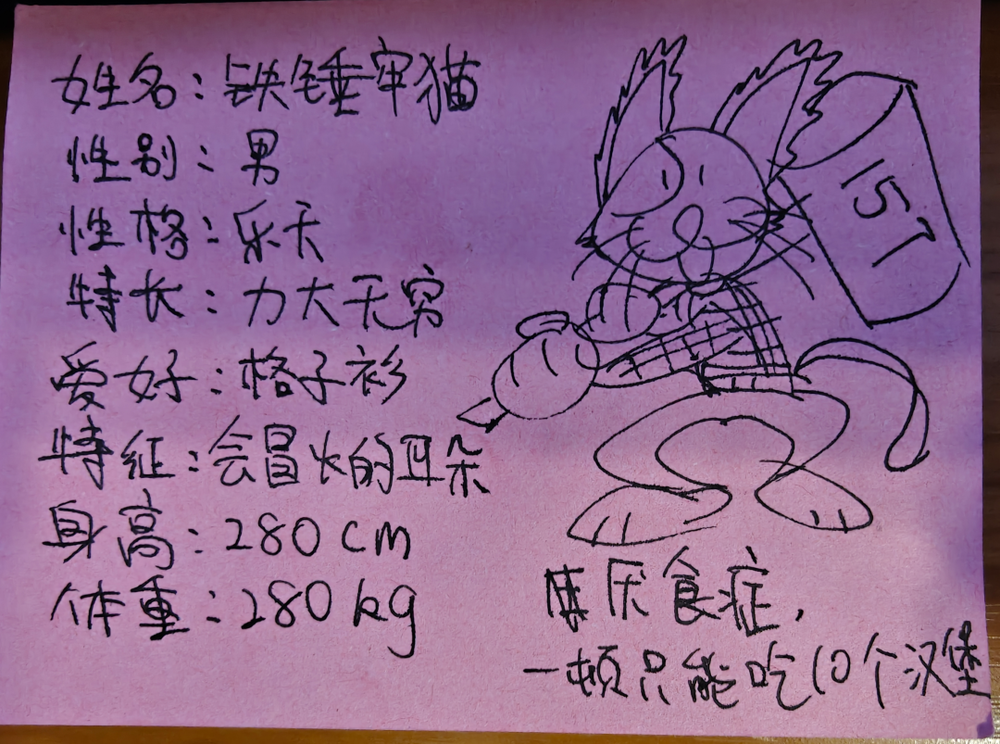 姓名：铁锤牢猫
性别：男
性格：乐天
特长：力大无穷
爱好：格子衫
特征：会冒火的耳朵
身高：280cm
体重：280kg
15T
厌食症，
一顿只能吃10个汉堡